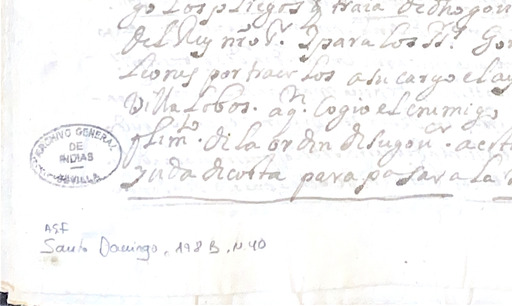 go los pliegos q traia de dho gov
del Rey nro Sr. y para los Srs. Gov
por traer los a su cargo el ay
Villa Lobos. a qn cogio el enemigo
di la orden de su govor. a este
yuda de costa para pasar a la
ARCHIVO GENERAL
DE
INDIAS
SEVILLA
Santo Domingo, 198 B, N 40